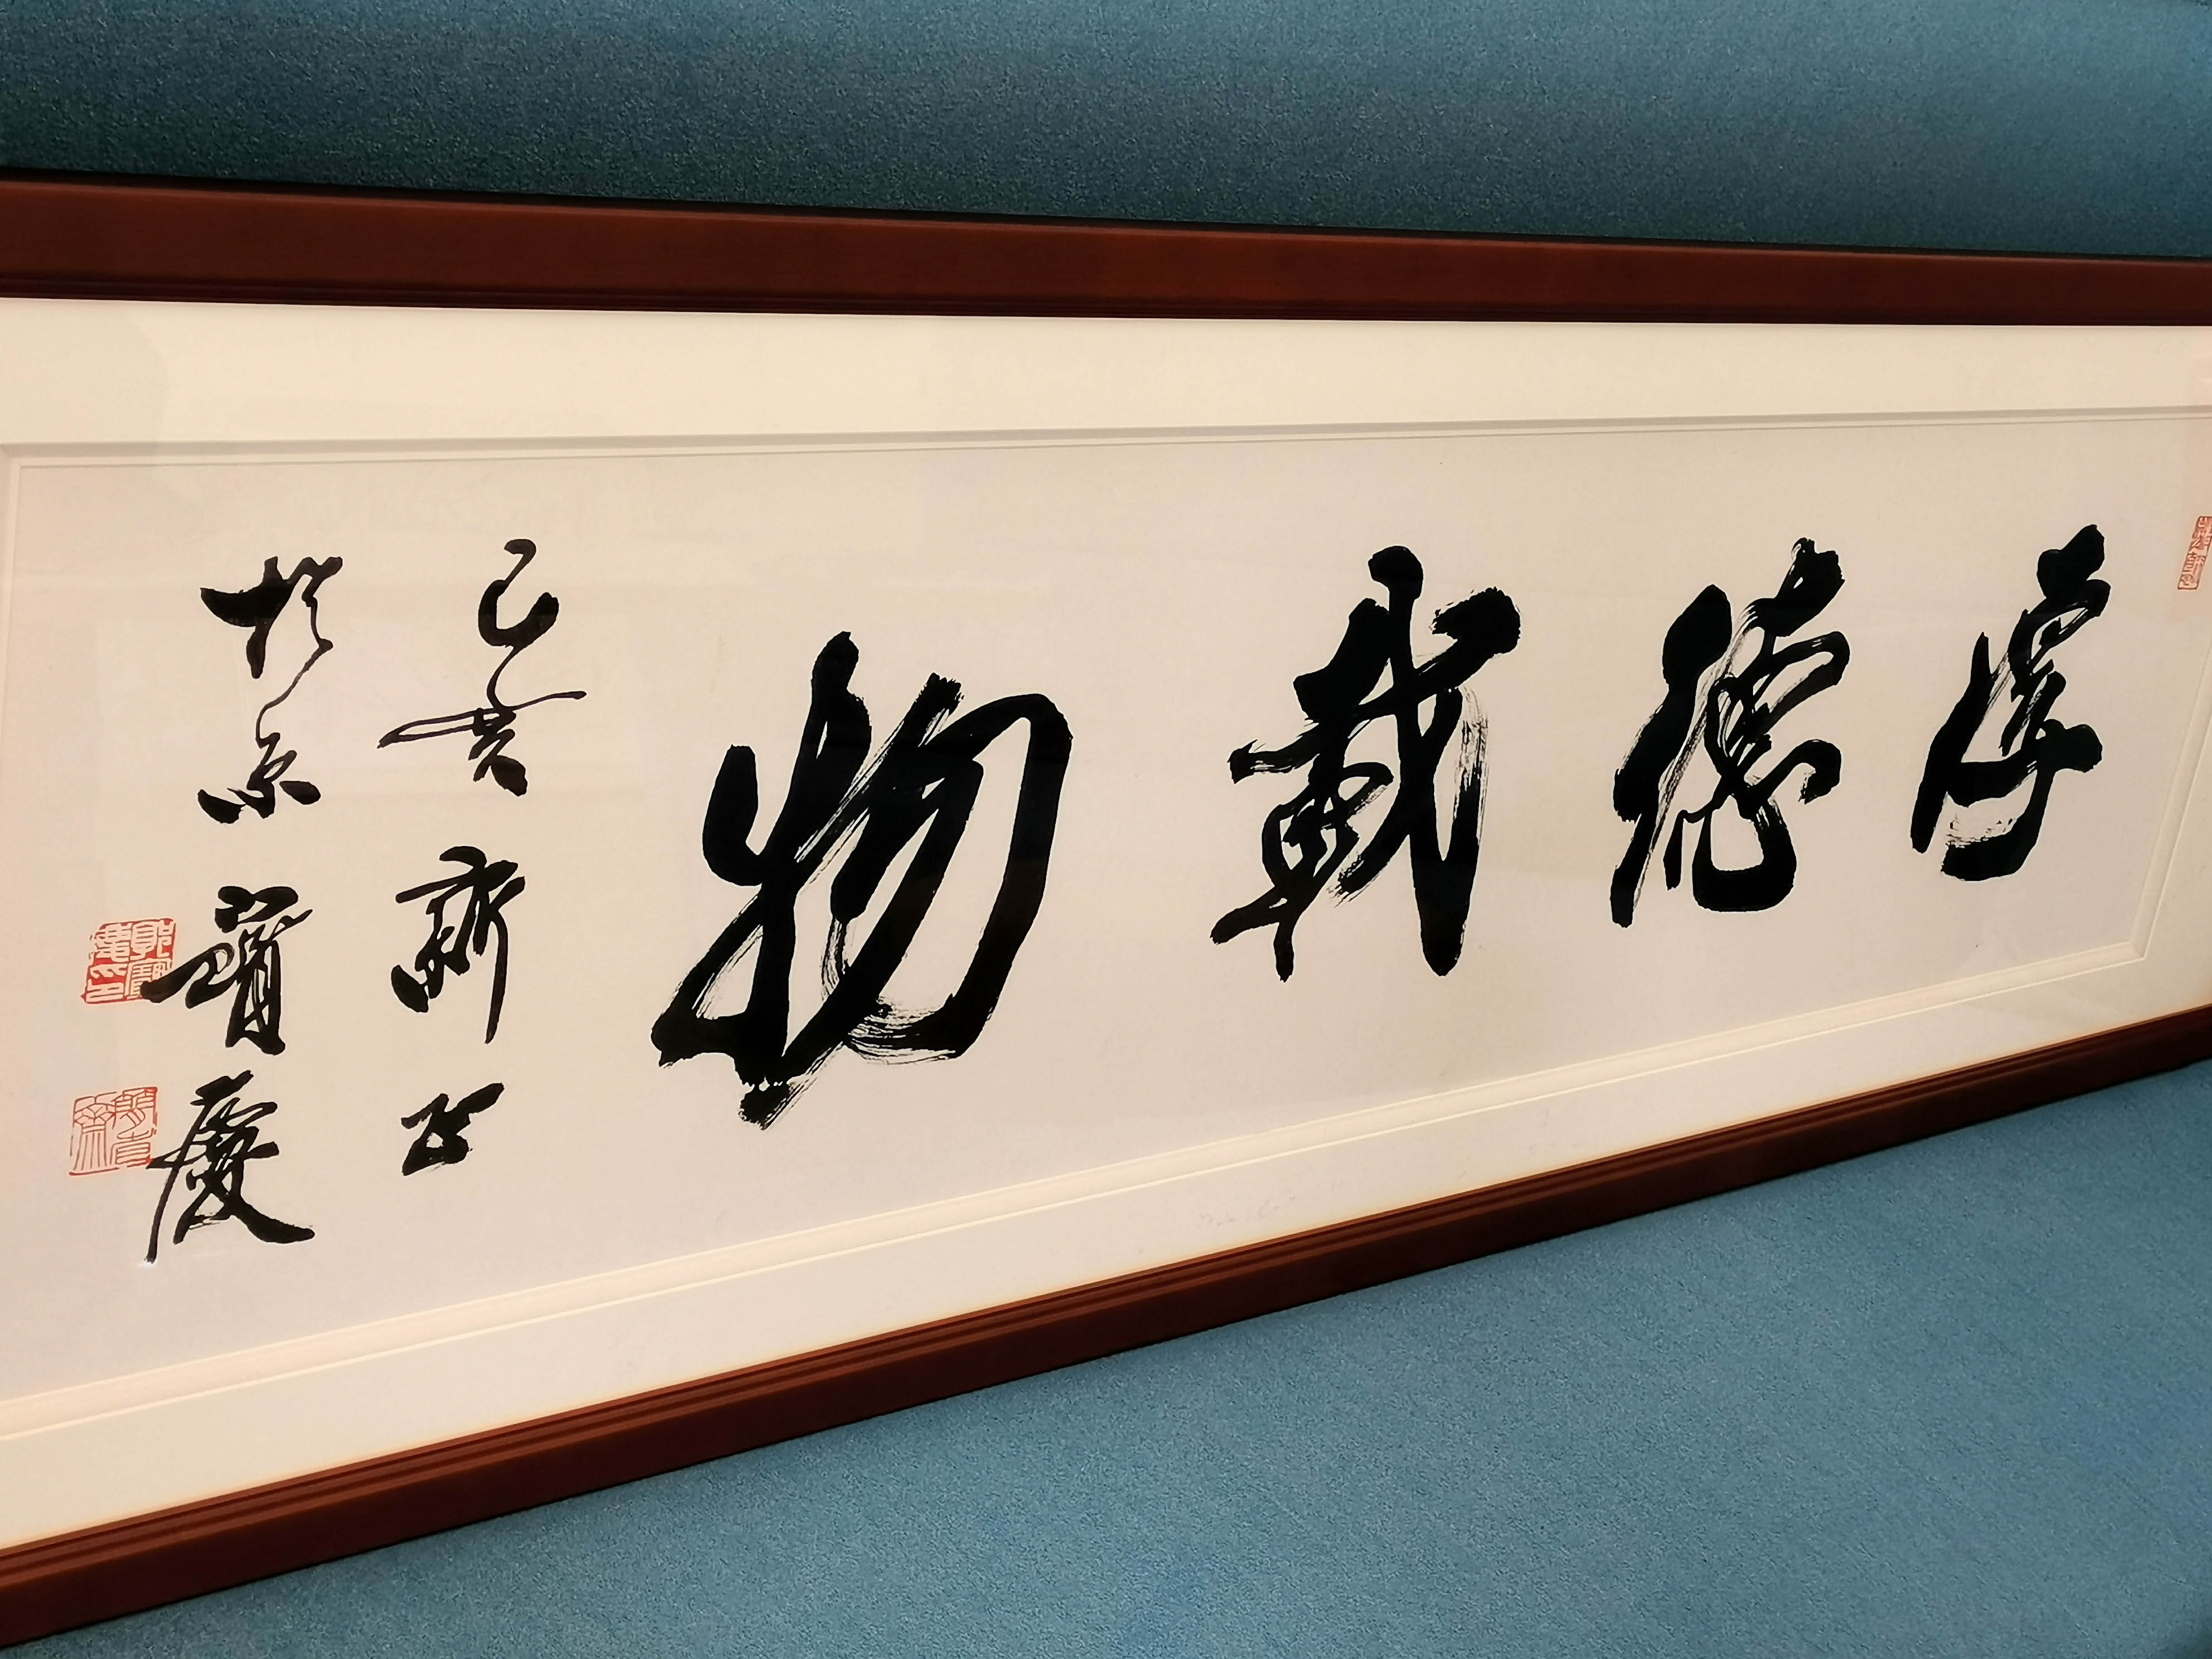 厚德載物
己亥新正
於京寶慶